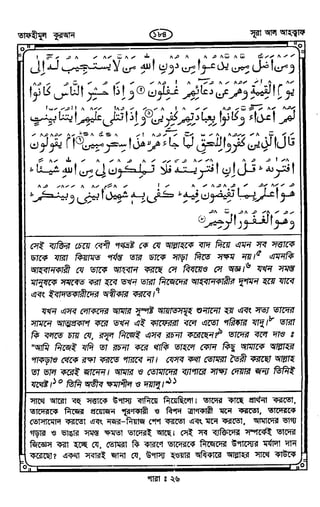 তাফহীমুল কুরআন
১৮৪
সূরা আল আহক্বাফ
وَمَنْ اَضَلُّ مِمَّنْ يَّدْعُوْا مِنْ دُوْنِ اللهِ مَنْ لَّا يَسْتَجِيْبُ لَهٗۤ اِلٰى
يَوْمِ الْقِيٰمَةِ وَهُمْ عَنْ دُعَآئِهِمْ غٰفِلُوْنَ۝ وَاِذَا حُشِرَ النَّاسُ كَانُوْا
لَهُمْ اَعْدَآءً وَّكَانُوْا بِعِبَادَتِهِمْ كٰفِرِيْنَ۝ وَاِذَا تُتْلٰى عَلَيْهِمْ اٰيٰتُنَا بَيِّنٰتٍ
قَالَ الَّذِيْنَ كَفَرُوْا لِلْحَقِّ لَمَّا جَآءَهُمْ هٰذَا سِحْرٌ مُّبِيْنٌ۝ اَمْ يَقُوْلُوْنَ
افْتَرٰىهُ قُلْ اِنِ افْتَرَيْتُهٗ فَلَا تَمْلِكُوْنَ لِيْ مِنَ اللهِ شَيْئًا
هُوَ اَعْلَمُ بِمَا تُفِيْضُوْنَ فِيْهِ كَفٰى بِهٖ شَهِيْدًا بَيْنِيْ وَبَيْنَكُمْ
وَهُوَ الْغَفُوْرُ الرَّحِيْمُ۝
সেই ব্যক্তির চেয়ে বেশী পথভ্রষ্ট কে যে আল্লাহকে বাদ দিয়ে এমন সব সত্তাকে
ডাকে যারা কিয়ামত পর্যন্ত তার ডাকে সাড়া দিতে সক্ষম নয়।৫ এমনকি
আহবানকারী যে তাকে আহবান করছে সে বিষয়েও সে অজ্ঞ।৬ যখন সমস্ত
মানুষকে সমবেত করা হবে তখন তারা নিজেদের আহবানকারীর দুশমন হয়ে যাবে
এবং ইবাদতকারীদের অস্বীকার করবে।৭
যখন এসব লোকদের আমার সুস্পষ্ট আয়াতসমূহ শুনানো হয় এবং সত্য তাদের
সামনে আত্মপ্রকাশ করে তখন এই কাফেররা বলে এতো পরিষ্কার যাদু।৮ তারা
কি বলতে চায় যে, রসূল নিজেই এসব রচনা করেছেন?৯ তাদের বলে দাও ঃ
“আমি নিজেই যদি তা রচনা করে থাকি তাহলে কোন কিছু আমাকে আল্লাহর
পাকড়াও থেকে রক্ষা করতে পারবে না। যেসব কথা তোমরা তৈরী করছো আল্লাহ
তা ভাল করেই জানেন। আমার ও তোমাদের ব্যাপারে সাক্ষ্য দেয়ার জন্য তিনিই
যথেষ্ট।১০ তিনি অতীব ক্ষমাশীল ও দয়ালু।১১
সাথে আরো বহু সত্তাকে উপাস্য বানিয়ে নিয়েছিলো। তাদের কাছে প্রার্থনা করতো,
তাদেরকে নিজের প্রয়োজন পূরণকারী ও বিপদ ত্রাণকারী মনে করতো, তাদেরকে
তোসামোদ করতো এবং নজর-নিয়াজ পেশ করতো এবং মনে করতো, আমাদের ভাগ্য
গড়ার ও ভাঙার সমস্ত ক্ষমতা তাদেরই আছে। সেই সব ব্যক্তিদের সম্পর্কেই তাদের
জিজ্ঞেস করা হচ্ছে যে, তোমরা কি কারণে তাদেরকে নিজেদের উপাস্যের মর্যাদা দান
করেছো? একথা সবারই জানা যে, উপাস্য হওয়ার অধিকারে আল্লাহর সাথে কাউকে
পারা ঃ ২৬